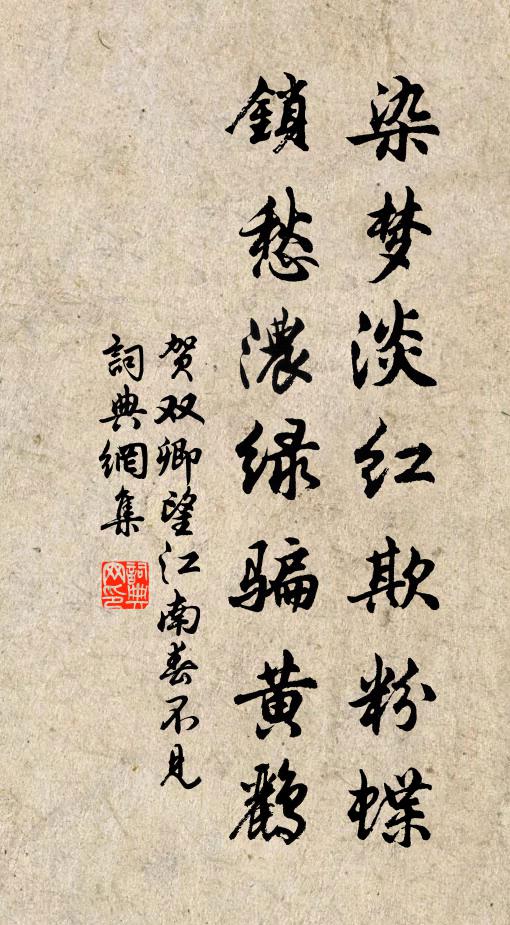 染梦淡红欺粉蝶
鎖愁濃绿骗黄鹂
贺双卿望江南春不见
詞典網集
詞典网印